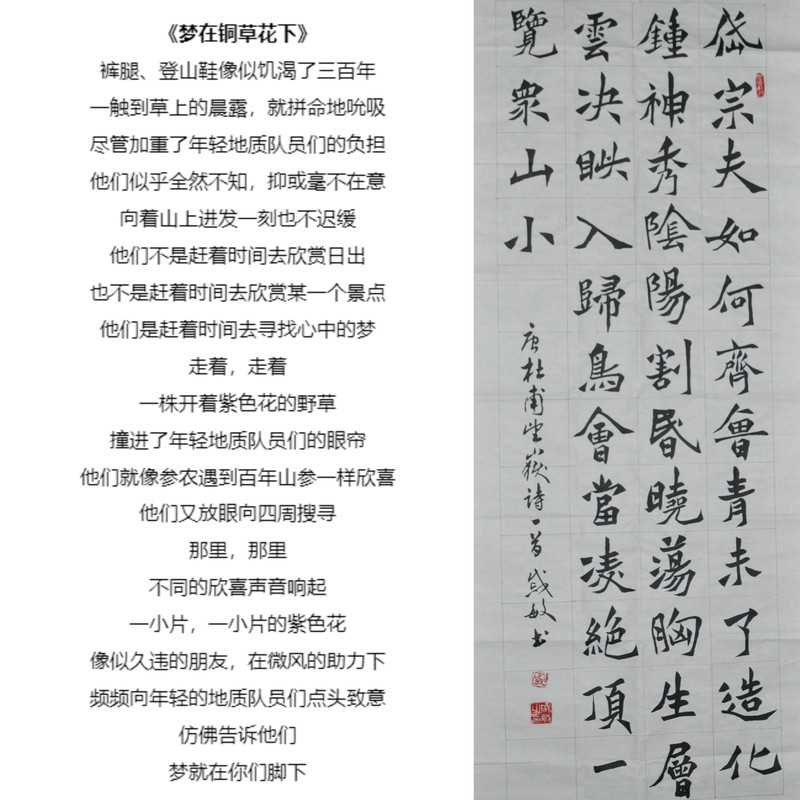 《梦在铜草花下》
裤腿、登山鞋像似饥渴了三百年
一触到草上的晨露，就拼命地吮吸
尽管加重了年轻地质队员们的负担
他们似乎全然不知，抑或毫不在意
向着山上进发一刻也不迟缓
他们不是赶着时间去欣赏日出
也不是赶着时间去欣赏某一个景点
他们是赶着时间去寻找心中的梦
走着，走着
一株开着紫色花的野草
撞进了年轻地质队员们的眼帘
他们就像参农遇到百年山参一样欣喜
他们又放眼向四周搜寻
那里，那里
不同的欣喜声音响起
一小片，一小片的紫色花
像似久违的朋友，在微风的助力下
频频向年轻的地质队员们点头致意
仿佛告诉他们
梦就在你们脚下
岱宗夫如何齊魯青未了造化
鍾神秀陰陽割昬曉蕩胸生層
雲决眦入歸鳥會當凌絕頂一
覽衆山小
唐杜甫望嶽詩一首敏书